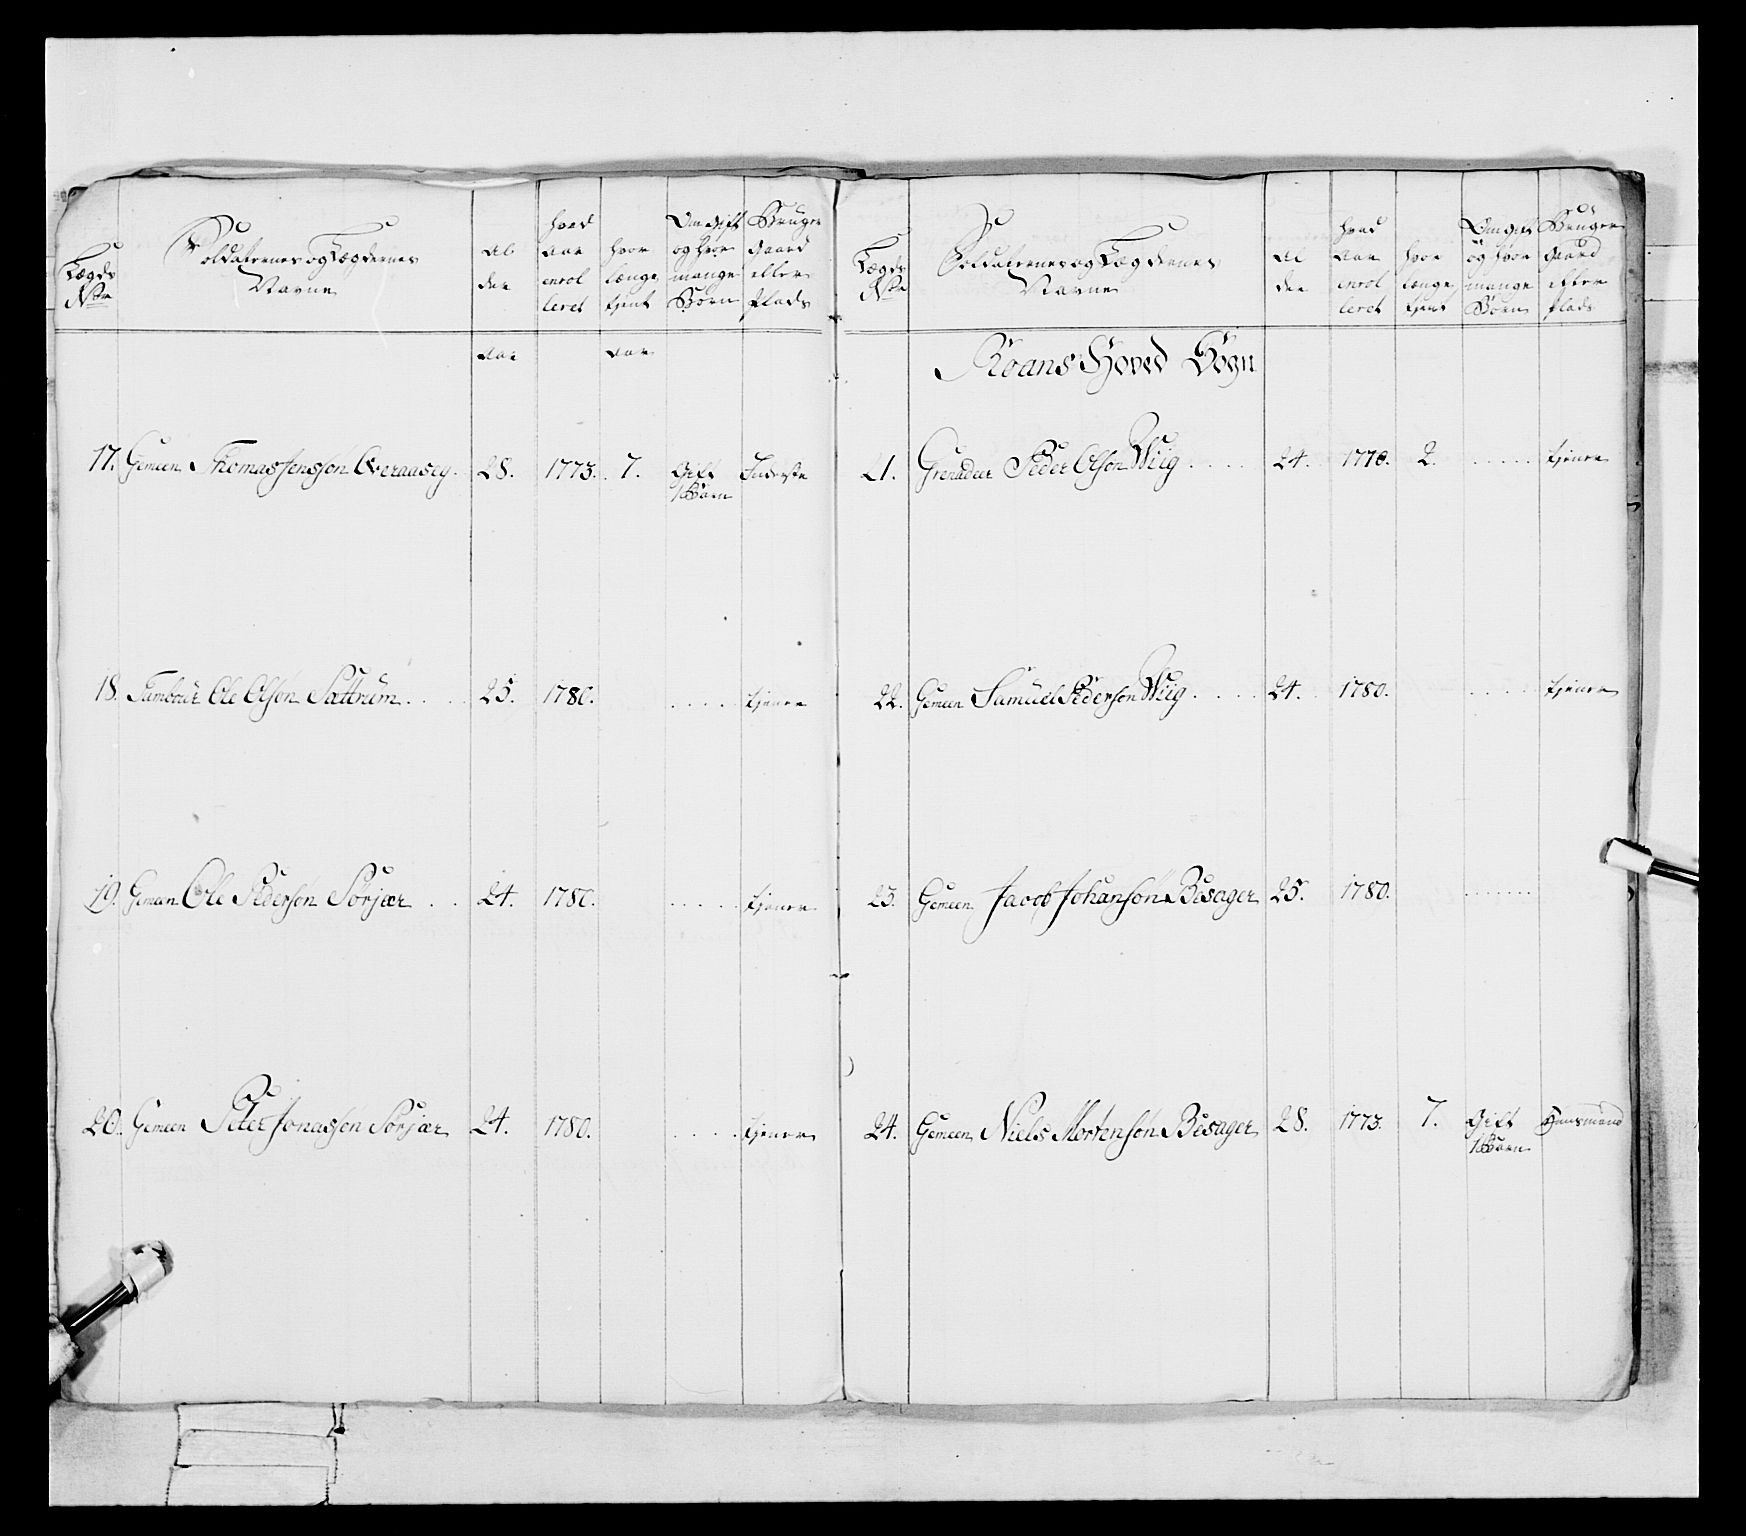 Lægds
Nr
Soldaternes og Lægdernes
Navne
Al
der
hvad
Aar
enrol
leret
hvor
længe
tjent
Om Gift
og hvor
mange
Børn
Bruger
Gaard
eller
Plads
Aar
Aar
17. Gemeen Thomas Jensøn Overaasey . 28. 1773. 7. Gift Inderste
1 Barn
18. Tambour Ole Olsøn Sættrum . . . . 25. 1780. . . . . . tjener
19. Gemeen Ole Pedersøn Sørjær . . 24. 1780. . . . . . tjener
20. Gemeen Peter Jonassøn Sørjær 24. 1780. . . . . . tjener
Lægds
Nr
Soldaternes og Lægdernes
Navne
Al
der
hvad
Aar
enrol
leret
hvor
længe
tjent
Om gift
og hvor
mange
Børn
Bruger
Gaard
eller
Plads
Roans Hoved Sogn
21. Grenadeer Peder Olsøn Wiig . . . . 24. 1778. 2. . . . . . tjener
22. Gemeen Samuel Pedersøn Wiig . . . . 24. 1780. . . . . . tjener
23. Gemeen Jacob Johansøn Besager 25. 1780. . . . . . .
24. Gemeen Niels Mortensøn Besager 28. 1773. 7. Gift Huusmand
1 Barn